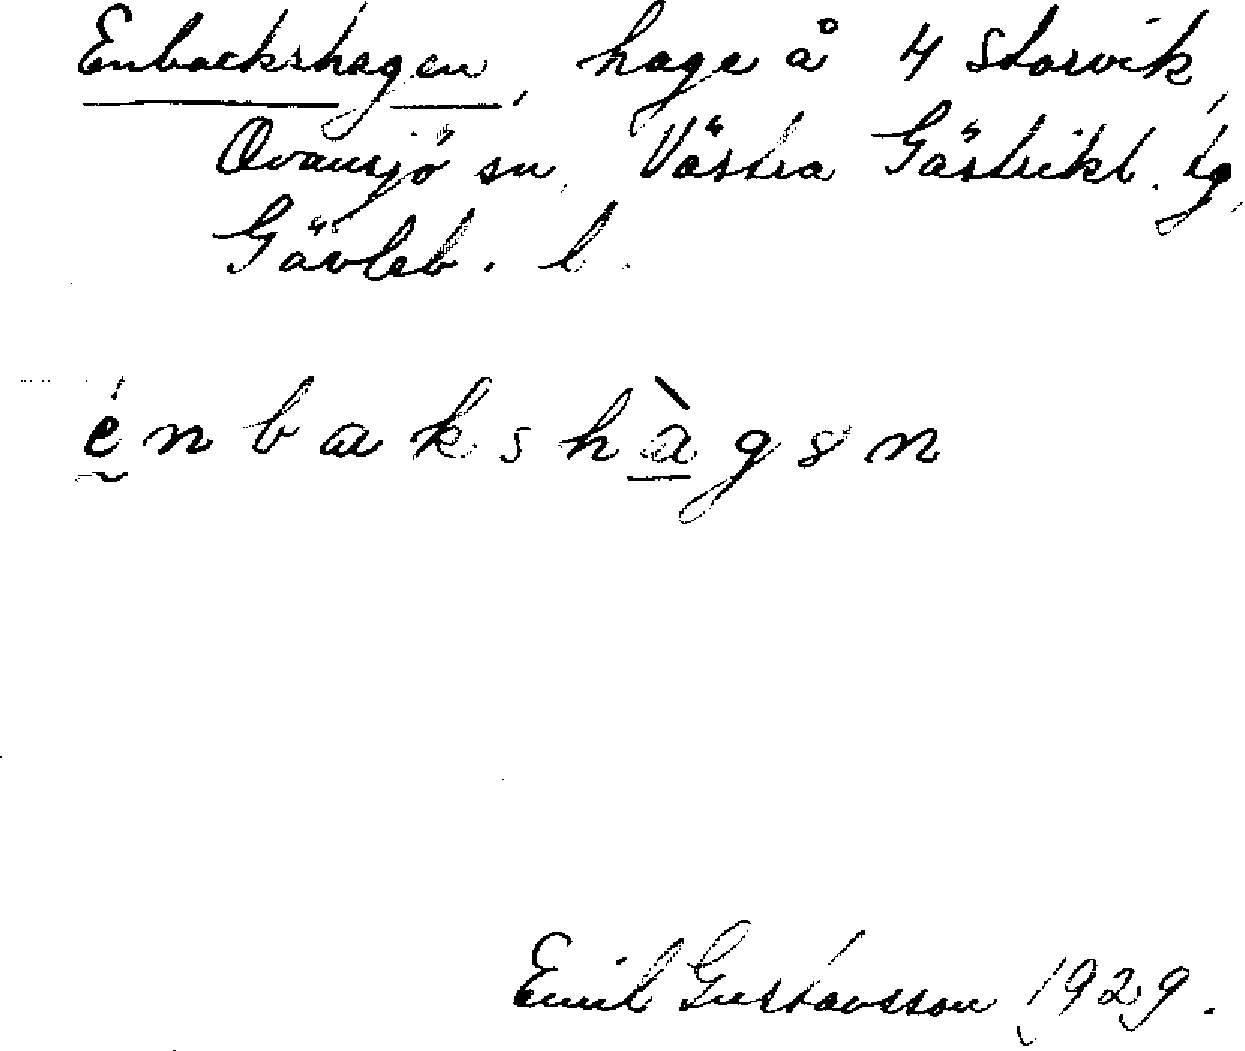 Enbackshagen, hage å 4 Storvik,
Ovansjö sn, Västra Gästrikl. tg,
Gävleb. l.
énbakshàgən
Emil Gustavsson 1929.